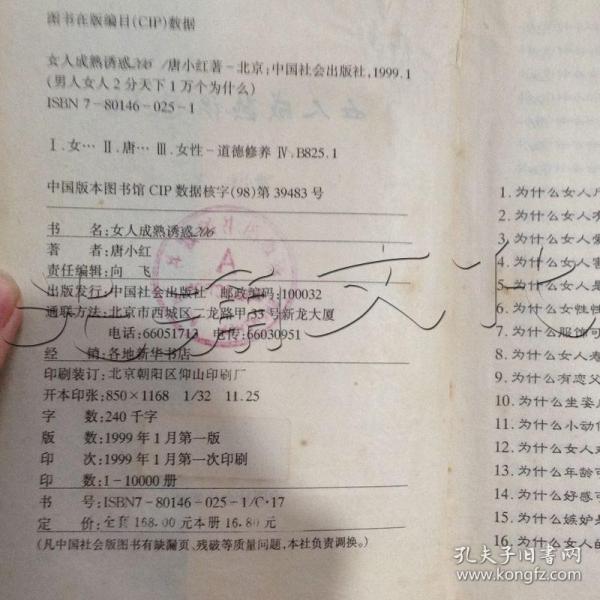 图书在版编目(CIP)数据
女人成熟诱惑206/唐小红著-北京:中国社会出版社,1999.1
(男人女人2分天下1万个为什么)
ISBN 7-80146-025-1
Ⅰ.女… Ⅱ.唐… Ⅲ.女性-道德修养 Ⅳ.B825.1
中国版本图书馆CIP数据核字(98)第39483号
书 名:女人成熟诱惑206
著 者:唐小红
责任编辑:向 飞
出版发行:中国社会出版社 邮政编码:100032
通联方法:北京市西城区二龙路甲33号新龙大厦
电话:66051713 传真:66030951
经 销:各地新华书店
印刷装订:北京朝阳区仰山印刷厂
开本印张:850×1168 1/32 11.25
字 数:240千字
版 数:1999年1月第一版
印 次:1999年1月第一次印刷
印 数:1-10000册
书 号:ISBN7-80146-025-1/C·17
定 价:全套168.00元本册16.80元
(凡中国社会版图书有缺漏页、残破等质量问题,本社负责调换。)
1.为什么女人
2.为什么女人有
3.为什么女人爱
4.为什么女人害
5.为什么女人是
6.为什么女性性
7.为什么服饰可
8.为什么女人卷
9.为什么有恋父
10.为什么坐姿
11.为什么小动作
12.为什么女人
13.为什么年龄可
14.为什么好感可
15.为什么嫉妒是
16.为什么女人的
孔夫子旧书网
www.kongfz.com